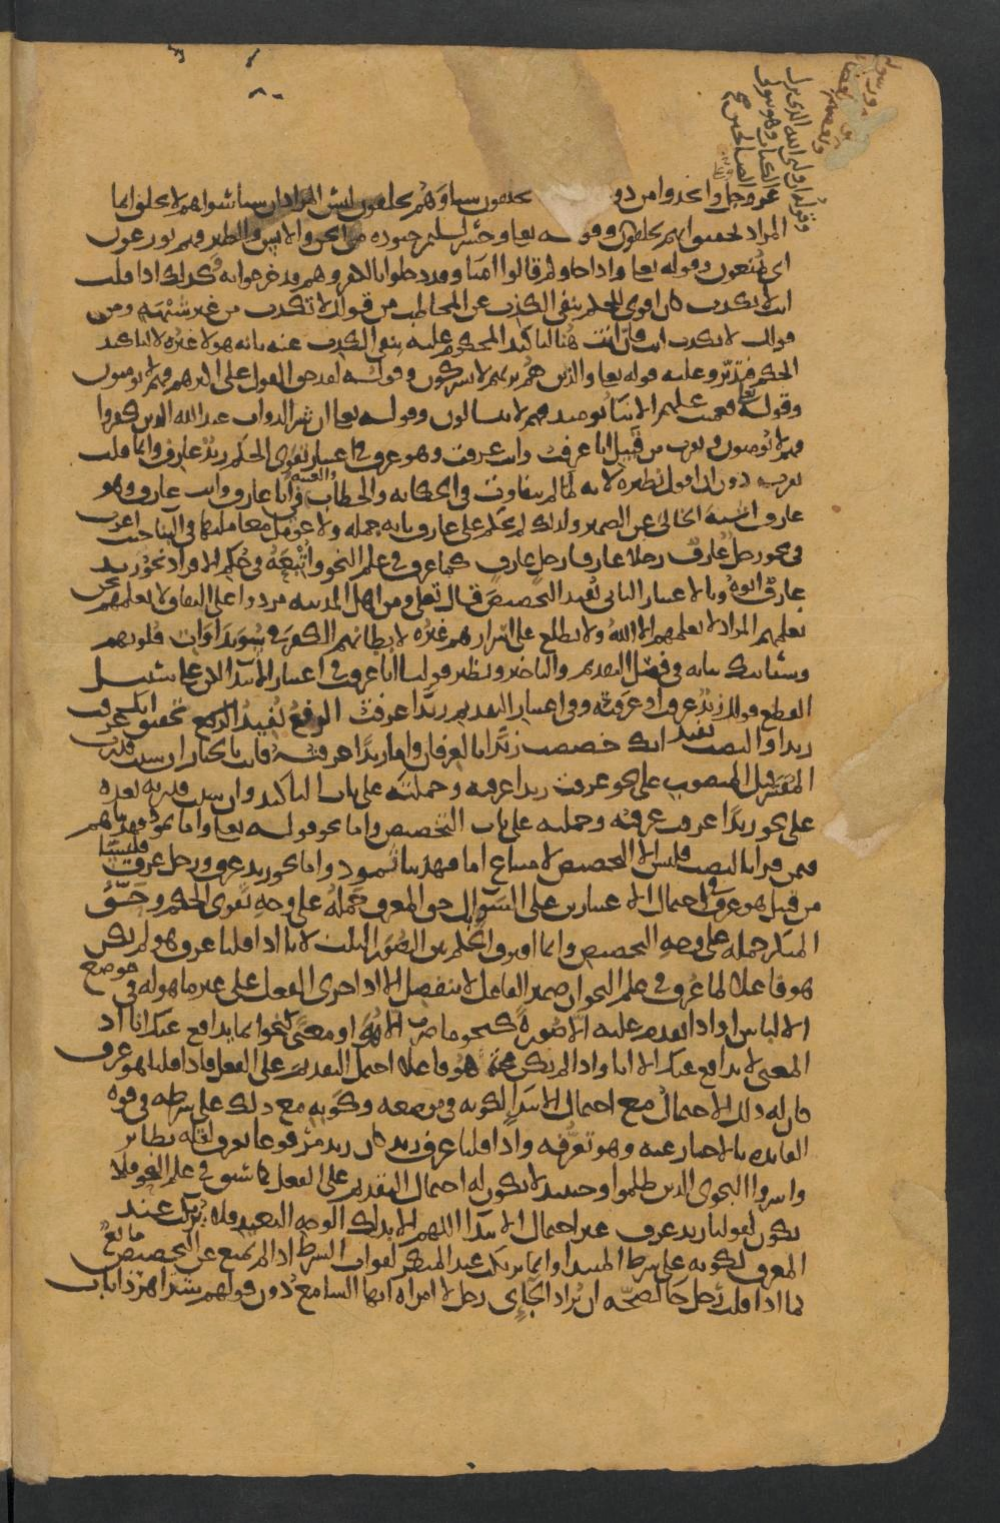 وقوله ان ولي الله الذي نزل
الكتاب وهو يتولى
الصالحين
عز وجل واتخذوا من دو يخلقون شيا وهم يخلقون ليس المراد ان شيا سواهم لا يخلق انما
المراد تحقيق انهم يخلقون وقوله تعالى وحشر لسليمن جنوده من الجن والانس والطير فهم يوزعون
اي يمنعون وقوله تعالى واذا جاوكم قالوا امنا وقد دخلوا بالكفر وهم قد خرجوا به وكذلك اذا قلت
انت لا تكذب كان اقوى للحكم بنفي الكذب عن المخاطب من قولك لا تكذب من غير شبهة ومن
قولك لا تكذب انت فان انت هنا لتاكيد المحكوم عليه بنفي الكذب عنه بانه هو لا غيره لا لتاكيد
الحكم فتدبر وعليه قوله تعالى والذين هم بربهم لا يشركون وقوله لقد حق القول على اكثرهم فهم لا يومنون
وقوله تعالى فعميت عليهم الانبا يوميد فهم لا يتسالون وقوله تعالى ان شر الدواب عند الله الذين كفروا
فهم لا يومنون ويقرب من قبيل انا عرفت وانت عرفت وهو عرف في اعتبار تقوى الحكم زيد عارف وانما قلت
يقرب دون ان اقول نظيره لانه لما لم يتفاوت في الحكاية والخطاب والغيبة في انا عارف وانت عارف وهو
عارف اشبه الخالي عن الضمير ولذلك لم يحكم على عارف بانه جملة ولا عومل معاملتها في البنا حيث اعرب
في نحو رجل عارف رجلا عارفا رجل عارف كما عرف في علم النحو واتبعه في حكم الافراد نحو زيد
عارف ابوه وبالاعتبار الثاني يفيد التخصيص قال تعالى ومن اهل المدينة مردوا على النفاق لا تعلمهم نحن
نعلمهم المراد لا يعلمهم الا الله ولا يطلع على اسرارهم غيره لابطانهم الكفر في سويداوات قلوبهم
وسياتيك بيانه في فصل التقديم والتاخير ونظير قولنا انا عرفت في اعتبار الابتدا لكن على سبيل
القطع قولك زيد عرف او عرفته وفي اعتبار التقديم زيدا عرفت الرفع يفيد تحقيق انك عرفت
زيدا والنصب يفيد انك خصصت زيدا بالعرفان واما زيدا عرفته فانت بالخيار ان شيت قدرت
المفسر قبل المنصوب على نحو عرفت زيدا عرفته وحملته على باب التاكيد وان شيت قدرته بعده
على نحو زيدا عرفت عرفته وحملته على باب التخصيص واما نحو قوله تعالى واما ثمود فهديناهم
فيمن قرا بالنصب فليس الا التخصيص لامتناع اما فهدينا ثمود واما نحو زيد عرف ورجل عرف فليسا
من قبيل هو عرف في احتمال الاعتبارين على السوا بل حق المعرف حمله على وجه تقوى الحكم وحق
المنكر حمله على وجه التخصيص وانما افترق الحكم بين الصور الثلث لانا اذا قلنا عرف هو لم يكن
هو فاعلا لما عرف في علم النحو ان ضمير الفاعل لا ينفصل الا اذا جرى الفعل على غير ما هو له في موضع
الالباس او اذا تقدم عليه الا صورة كنحو ما ضرب الا هو او معنى كنحو انما يدافع عنك انا اذ
المعنى لا يدافع عنك الا انا واذا لم يكن هو فاعلا احتمل التقديم على الفعل فاذا قلنا هو عرف
كان له ذلك الاحتمال مع احتمال الابتدا لكونه في موضعه وكونه مع ذلك على شرطه في قوة
الفايدة بالاخبار عنه وهو تعرفه واذا قلنا عرف زيد كان زيد مرفوعا بعرف لقلة نظاير
واسروا النجوى الذين ظلموا وحينيذ لا يكون له احتمال التقديم على الفعل كما سبق في علم النحو فلا
يكون لقولنا زيد عرف غير احتمال الابتدا اللهم الا بذلك الوجه البعيد فلا يرتكب عند
المعرف لكونه على شرط المبتدا وانما يرتكب عند المنكر لفوات الشرط اذا لم يمنع عن التخصيص مانع
كما اذا قلت رجل جا لصحة ان يراد الجاي رجل لا امراه ايها السامع دون قولهم شر اهر ذا ناب